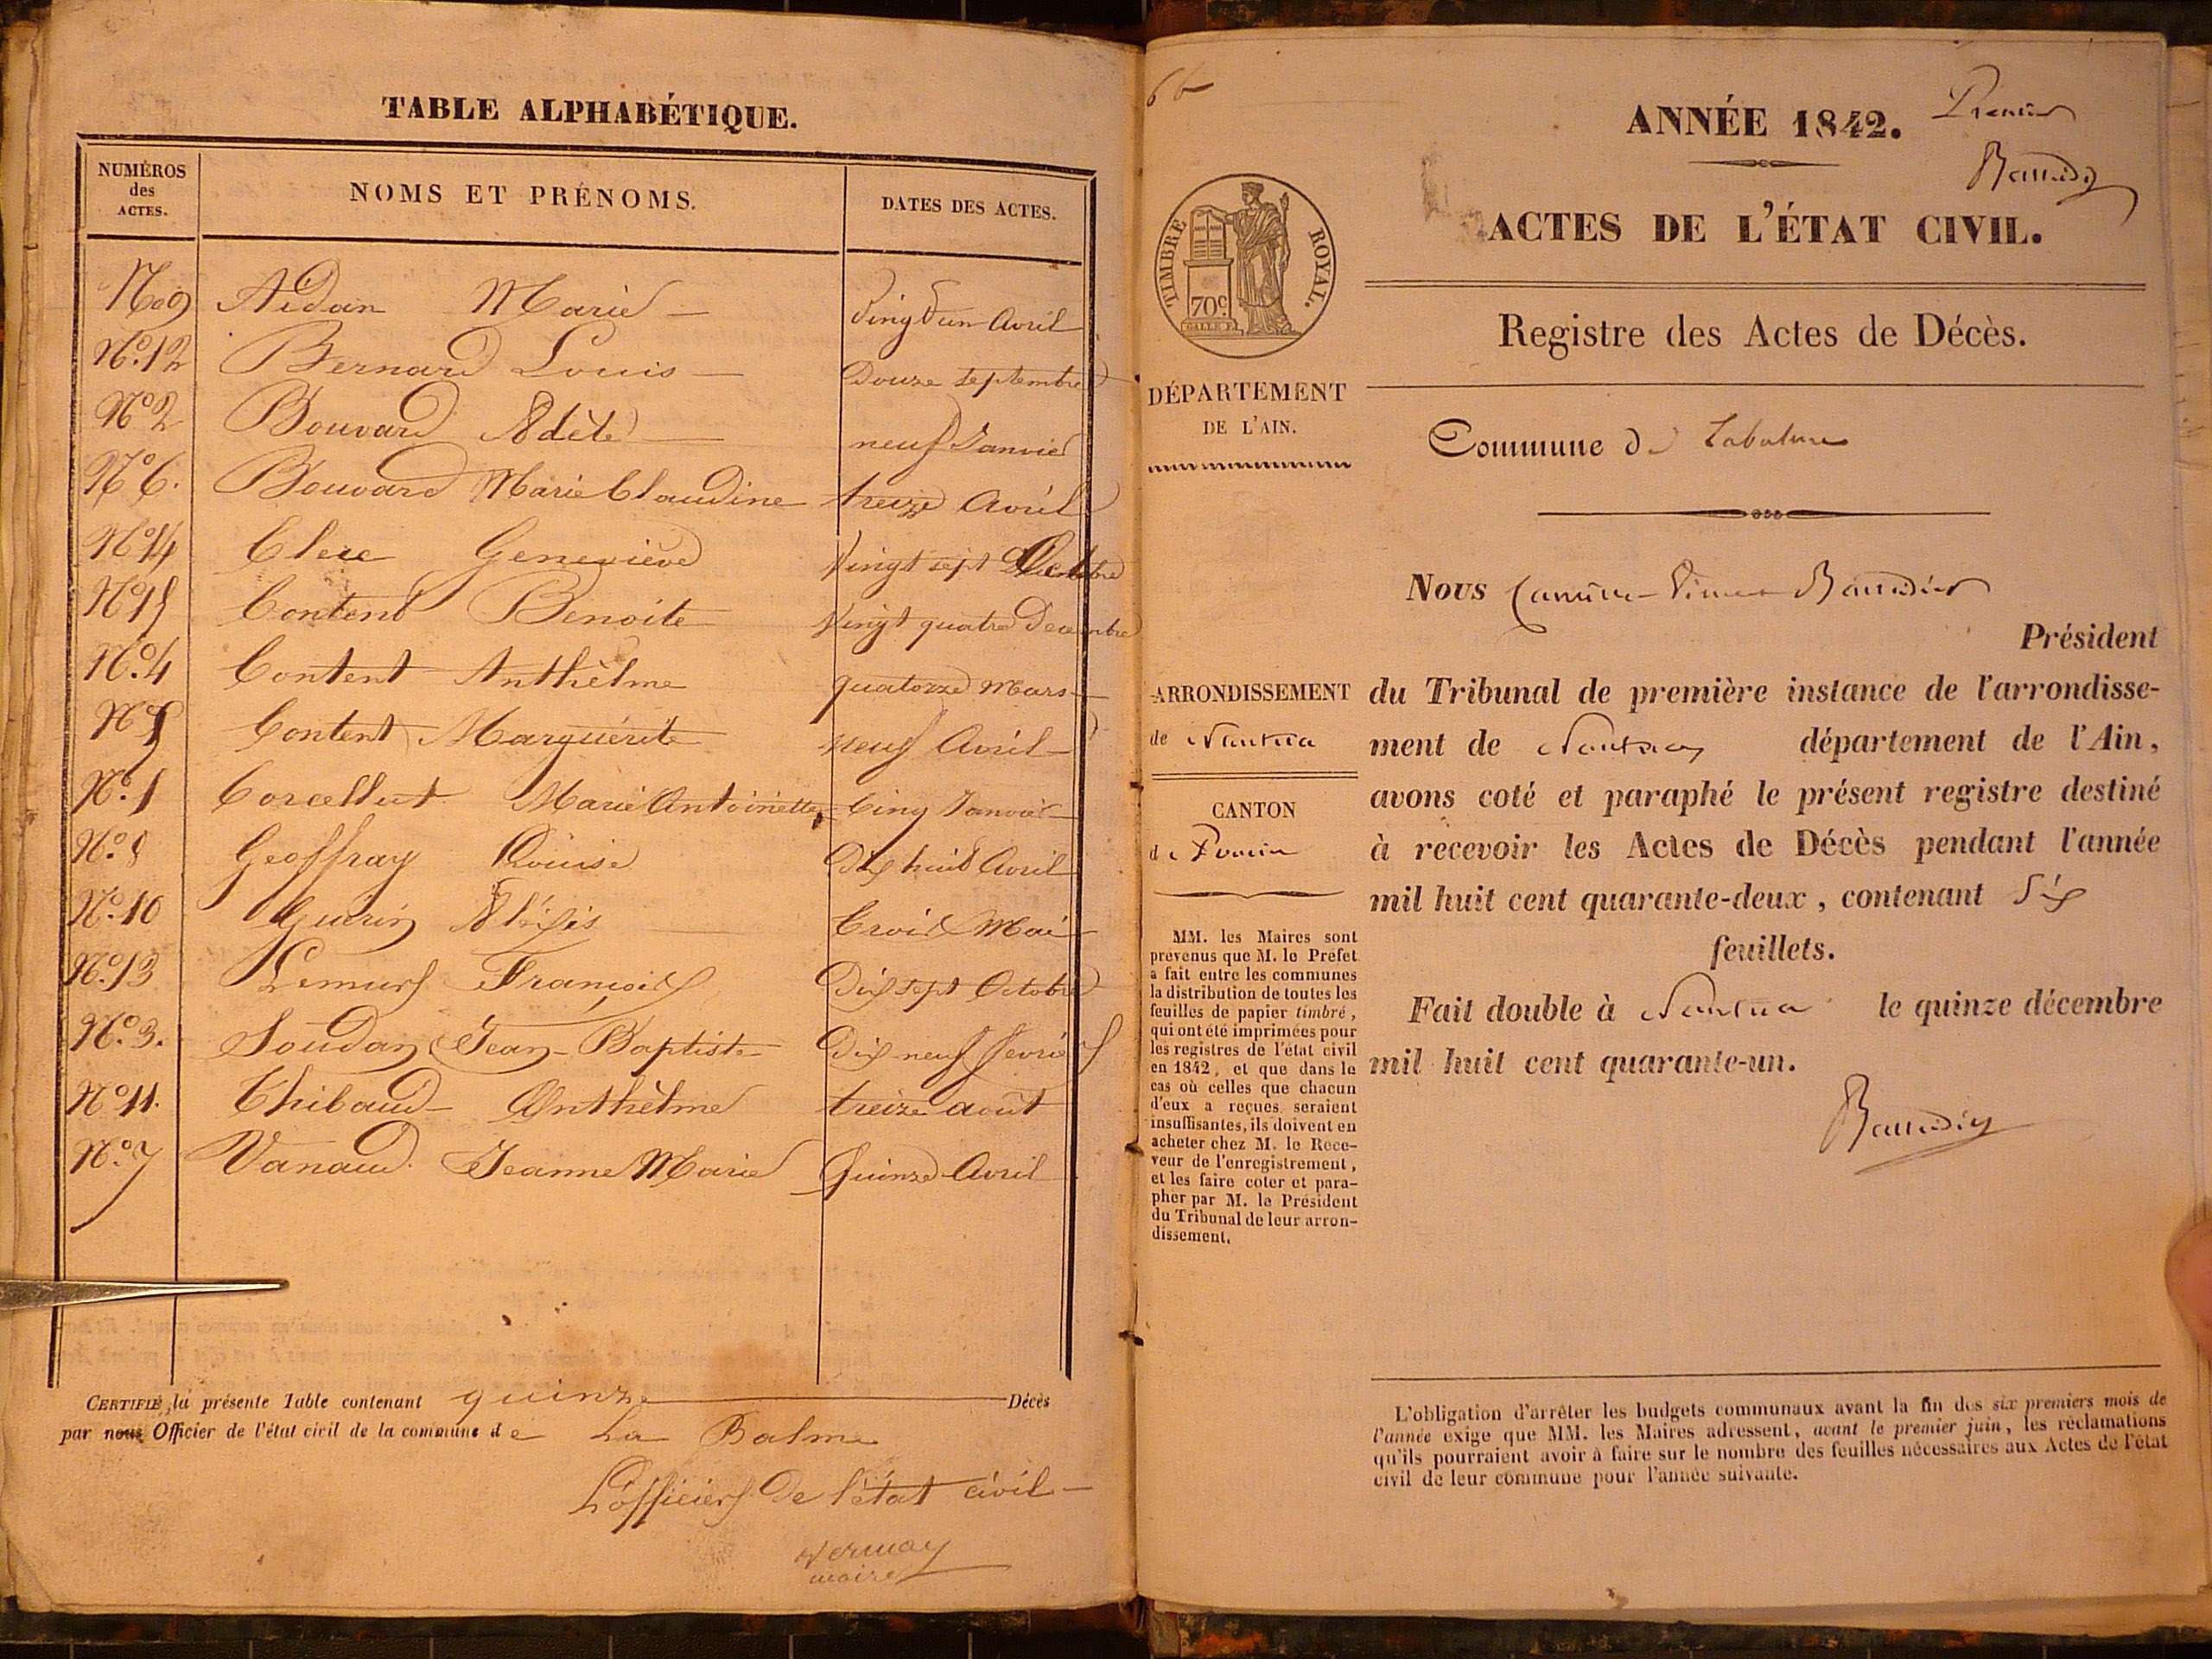 TABLE ALPHABÉTIQUE.
NUMÉROS des ACTES.
NOMS ET PRÉNOMS.
DATES DES ACTES.
No 9 Aidan Marie Vingt un Avril
No. 12 Bernard Louis Douze septembre
No 2 Bouvard Adèle neuf Janvier
No 6. Bouvard Marie Claudine treize Avril
No 14 Clerc Geneviève Vingt sept
No 15 Content Benoite Vingt quatre Decembre
No. 4 Content Anthèlme quatorze Mars
No 5 Content Marguérite neuf Avril
No. 1 Corcellut Marie Antoinette Cinq Janvier
No. 8 Geoffray Louise Dix huit Avril
No. 10 Guerin Aléxis trois Mai
No. 13 François Dix sept Octobre
No. 3. Soudan Jean-Baptiste Dix neuf fevrier
No 11. Thibaud Anthèlme treize août
No. 7 Vanaud Jeanne Marie Quinze Avril
CERTIFIÉ, la présente Table contenant quinze Décès
par nous Officier de l'état civil de la commune de La Balme
L'officier de l'état civil
maire
ANNÉE 1842.
Premier
Baudier
ACTES DE L'ÉTAT CIVIL.
TIMBRE ROYAL.
70c
Registre des Actes de Décès.
DÉPARTEMENT
DE L'AIN.
Commune de Labalme
Nous Baudier
Président
ARRONDISSEMENT
de Nantua
CANTON
de Poncin
du Tribunal de première instance de l'arrondisse-
ment de Nantua département de l'Ain,
avons coté et paraphé le présent registre destiné
à recevoir les Actes de Décès pendant l'année
mil huit cent quarante-deux, contenant Six
feuillets.
Fait double à Nantua le quinze décembre
mil huit cent quarante-un.
Baudier
MM. les Maires sont
prévenus que M. le Préfet
a fait entre les communes
la distribution de toutes les
feuilles de papier timbré,
qui ont été imprimées pour
les registres de l'état civil
en 1842, et que dans le
cas où celles que chacun
d'eux a reçues seraient
insuffisantes, ils doivent en
acheter chez M. le Rece-
veur de l'enregistrement,
et les faire coter et para-
pher par M. le Président
du Tribunal de leur arron-
dissement.
L'obligation d'arrêter les budgets communaux avant la fin des six premiers mois de
l'année exige que MM. les Maires adressent, avant le premier juin, les réclamations
qu'ils pourraient avoir à faire sur le nombre des feuilles nécessaires aux Actes de l'état
civil de leur commune pour l'année suivante.